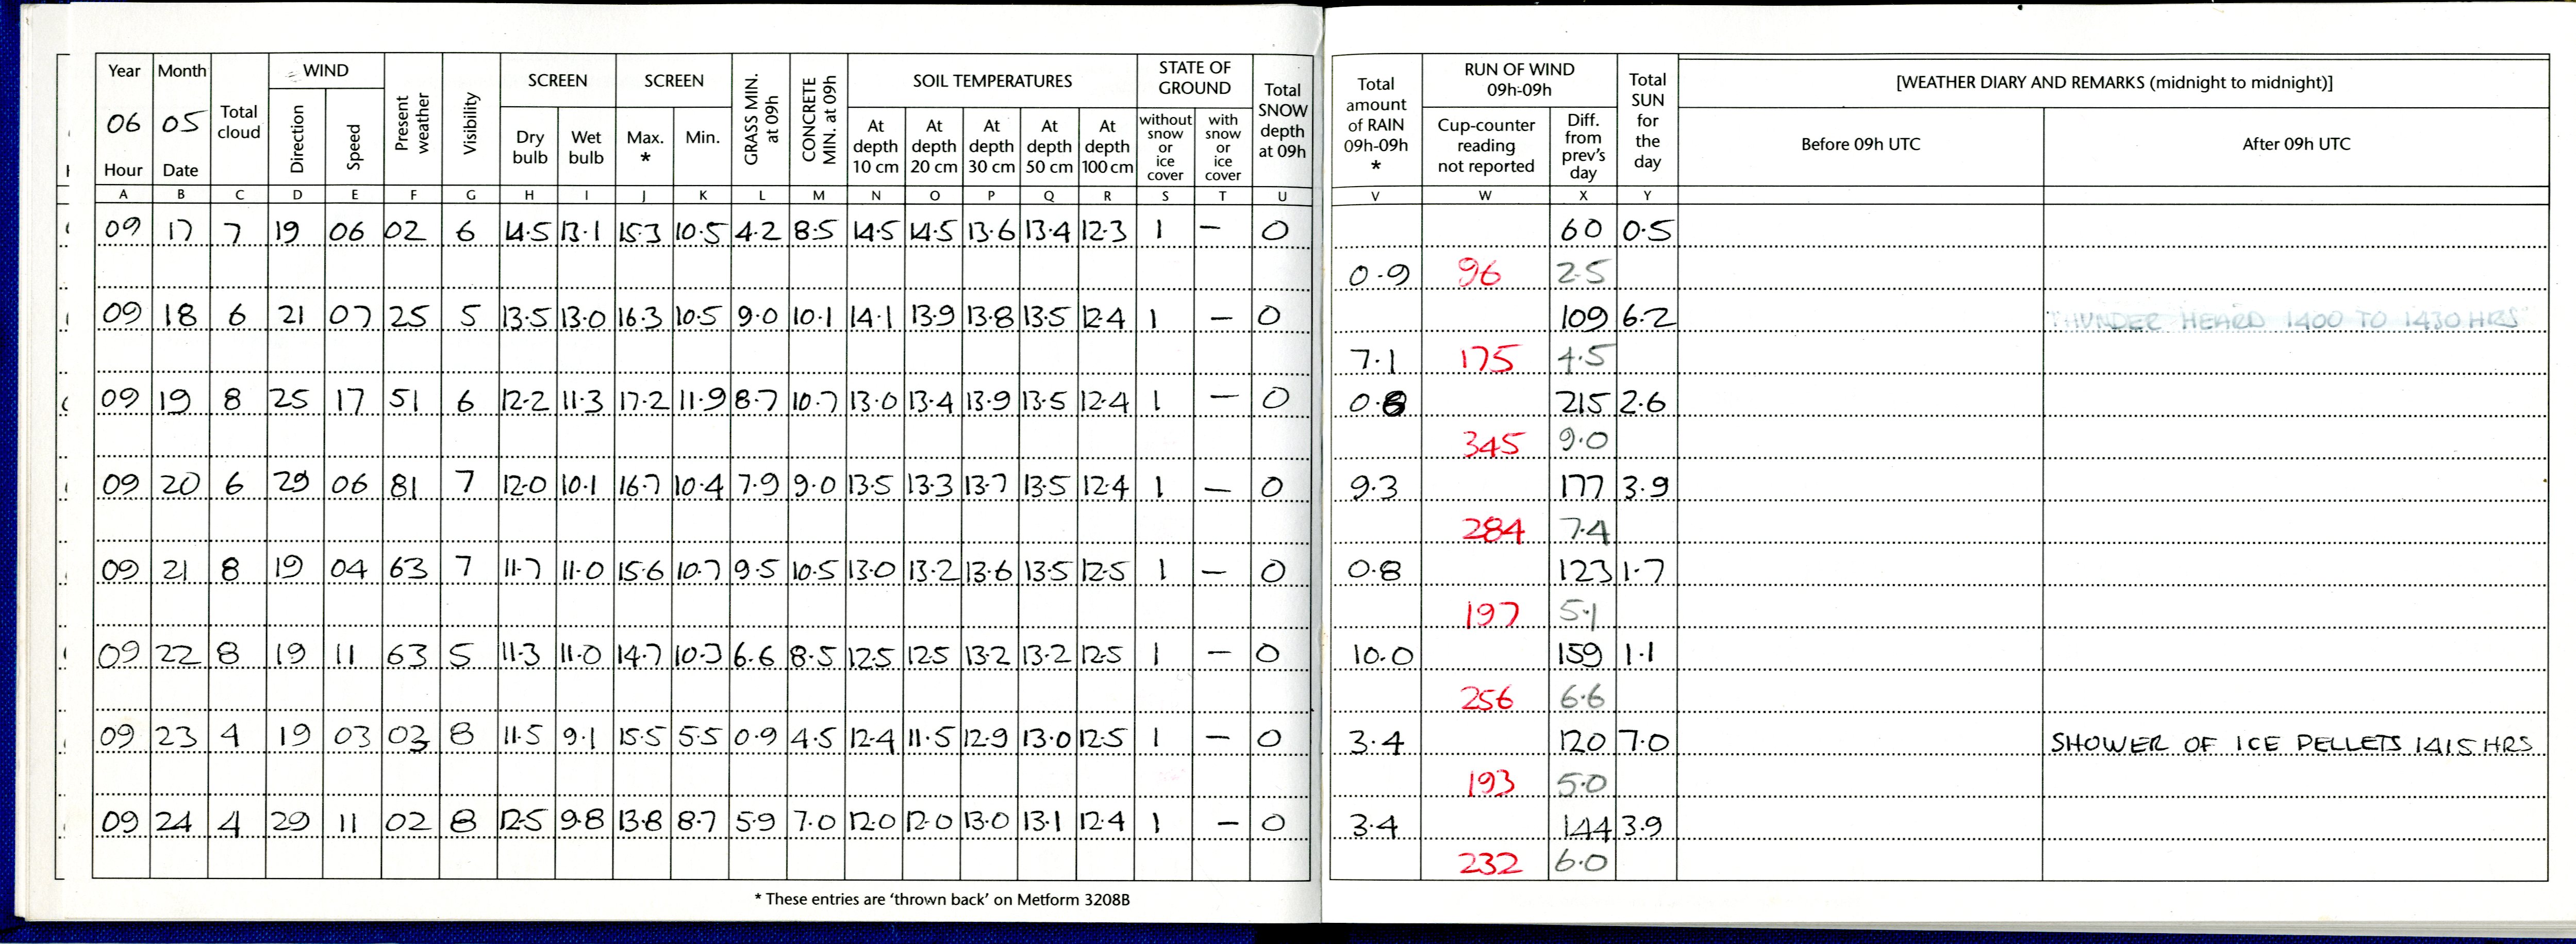 Year Month Total cloud WIND Present weather Visibility SCREEN SCREEN GRASS MIN. at 09h CONCRETE MIN. at 09h SOIL TEMPERATURES STATE OF GROUND Total SNOW depth at 09h Total amount of RAIN 09h-09h * RUN OF WIND 09h-09h Total SUN for the day [WEATHER DIARY AND REMARKS (midnight to midnight)]
06 05 Direction Speed Dry bulb Wet bulb Max. * Min. At depth 10 cm At depth 20 cm At depth 30 cm At depth 50 cm At depth 100 cm without snow or ice cover with snow or ice cover Cup-counter reading not reported Diff. from prev's day Before 09h UTC After 09h UTC
Hour Date
A B C D E F G H I J K L M N O P Q R S T U V W X Y
09 17 7 19 06 02 6 14.5 13.1 15.3 10.5 4.2 8.5 14.5 14.5 13.6 13.4 12.3 1 — 0 60 0.5
0.9 96 2.5
09 18 6 21 07 25 5 13.5 13.0 16.3 10.5 9.0 10.1 14.1 13.9 13.8 13.5 12.4 1 — 0 109 6.2 THUNDER HEARD 1400 TO 1430 HRS
7.1 175 4.5
09 19 8 25 17 51 6 12.2 11.3 17.2 11.9 8.7 10.7 13.0 13.4 13.9 13.5 12.4 1 — 0 215 2.6
345 9.0
09 20 6 29 06 81 7 12.0 10.1 16.7 10.4 7.9 9.0 13.5 13.3 13.7 13.5 12.4 1 — 0 9.3 177 3.9
284 7.4
09 21 8 19 04 63 7 11.7 11.0 15.6 10.7 9.5 10.5 13.0 13.2 13.6 13.5 12.5 1 — 0 0.8 123 1.7
197 5.1
09 22 8 19 11 63 5 11.3 11.0 14.7 6.6 8.5 12.5 12.5 13.2 13.2 12.5 1 — 0 10.0 159 1.1
256 6.6
09 23 4 19 03 03 8 11.5 9.1 15.5 5.5 0.9 4.5 12.4 11.5 12.9 13.0 12.5 1 — 0 3.4 120 7.0 SHOWER OF ICE PELLETS 1415 HRS
193 5.0
09 24 4 29 11 02 8 12.5 9.8 13.8 8.7 5.9 7.0 12.0 12.0 13.0 13.1 12.4 1 — 0 3.4 144 3.9
232 6.0
* These entries are 'thrown back' on Metform 3208B